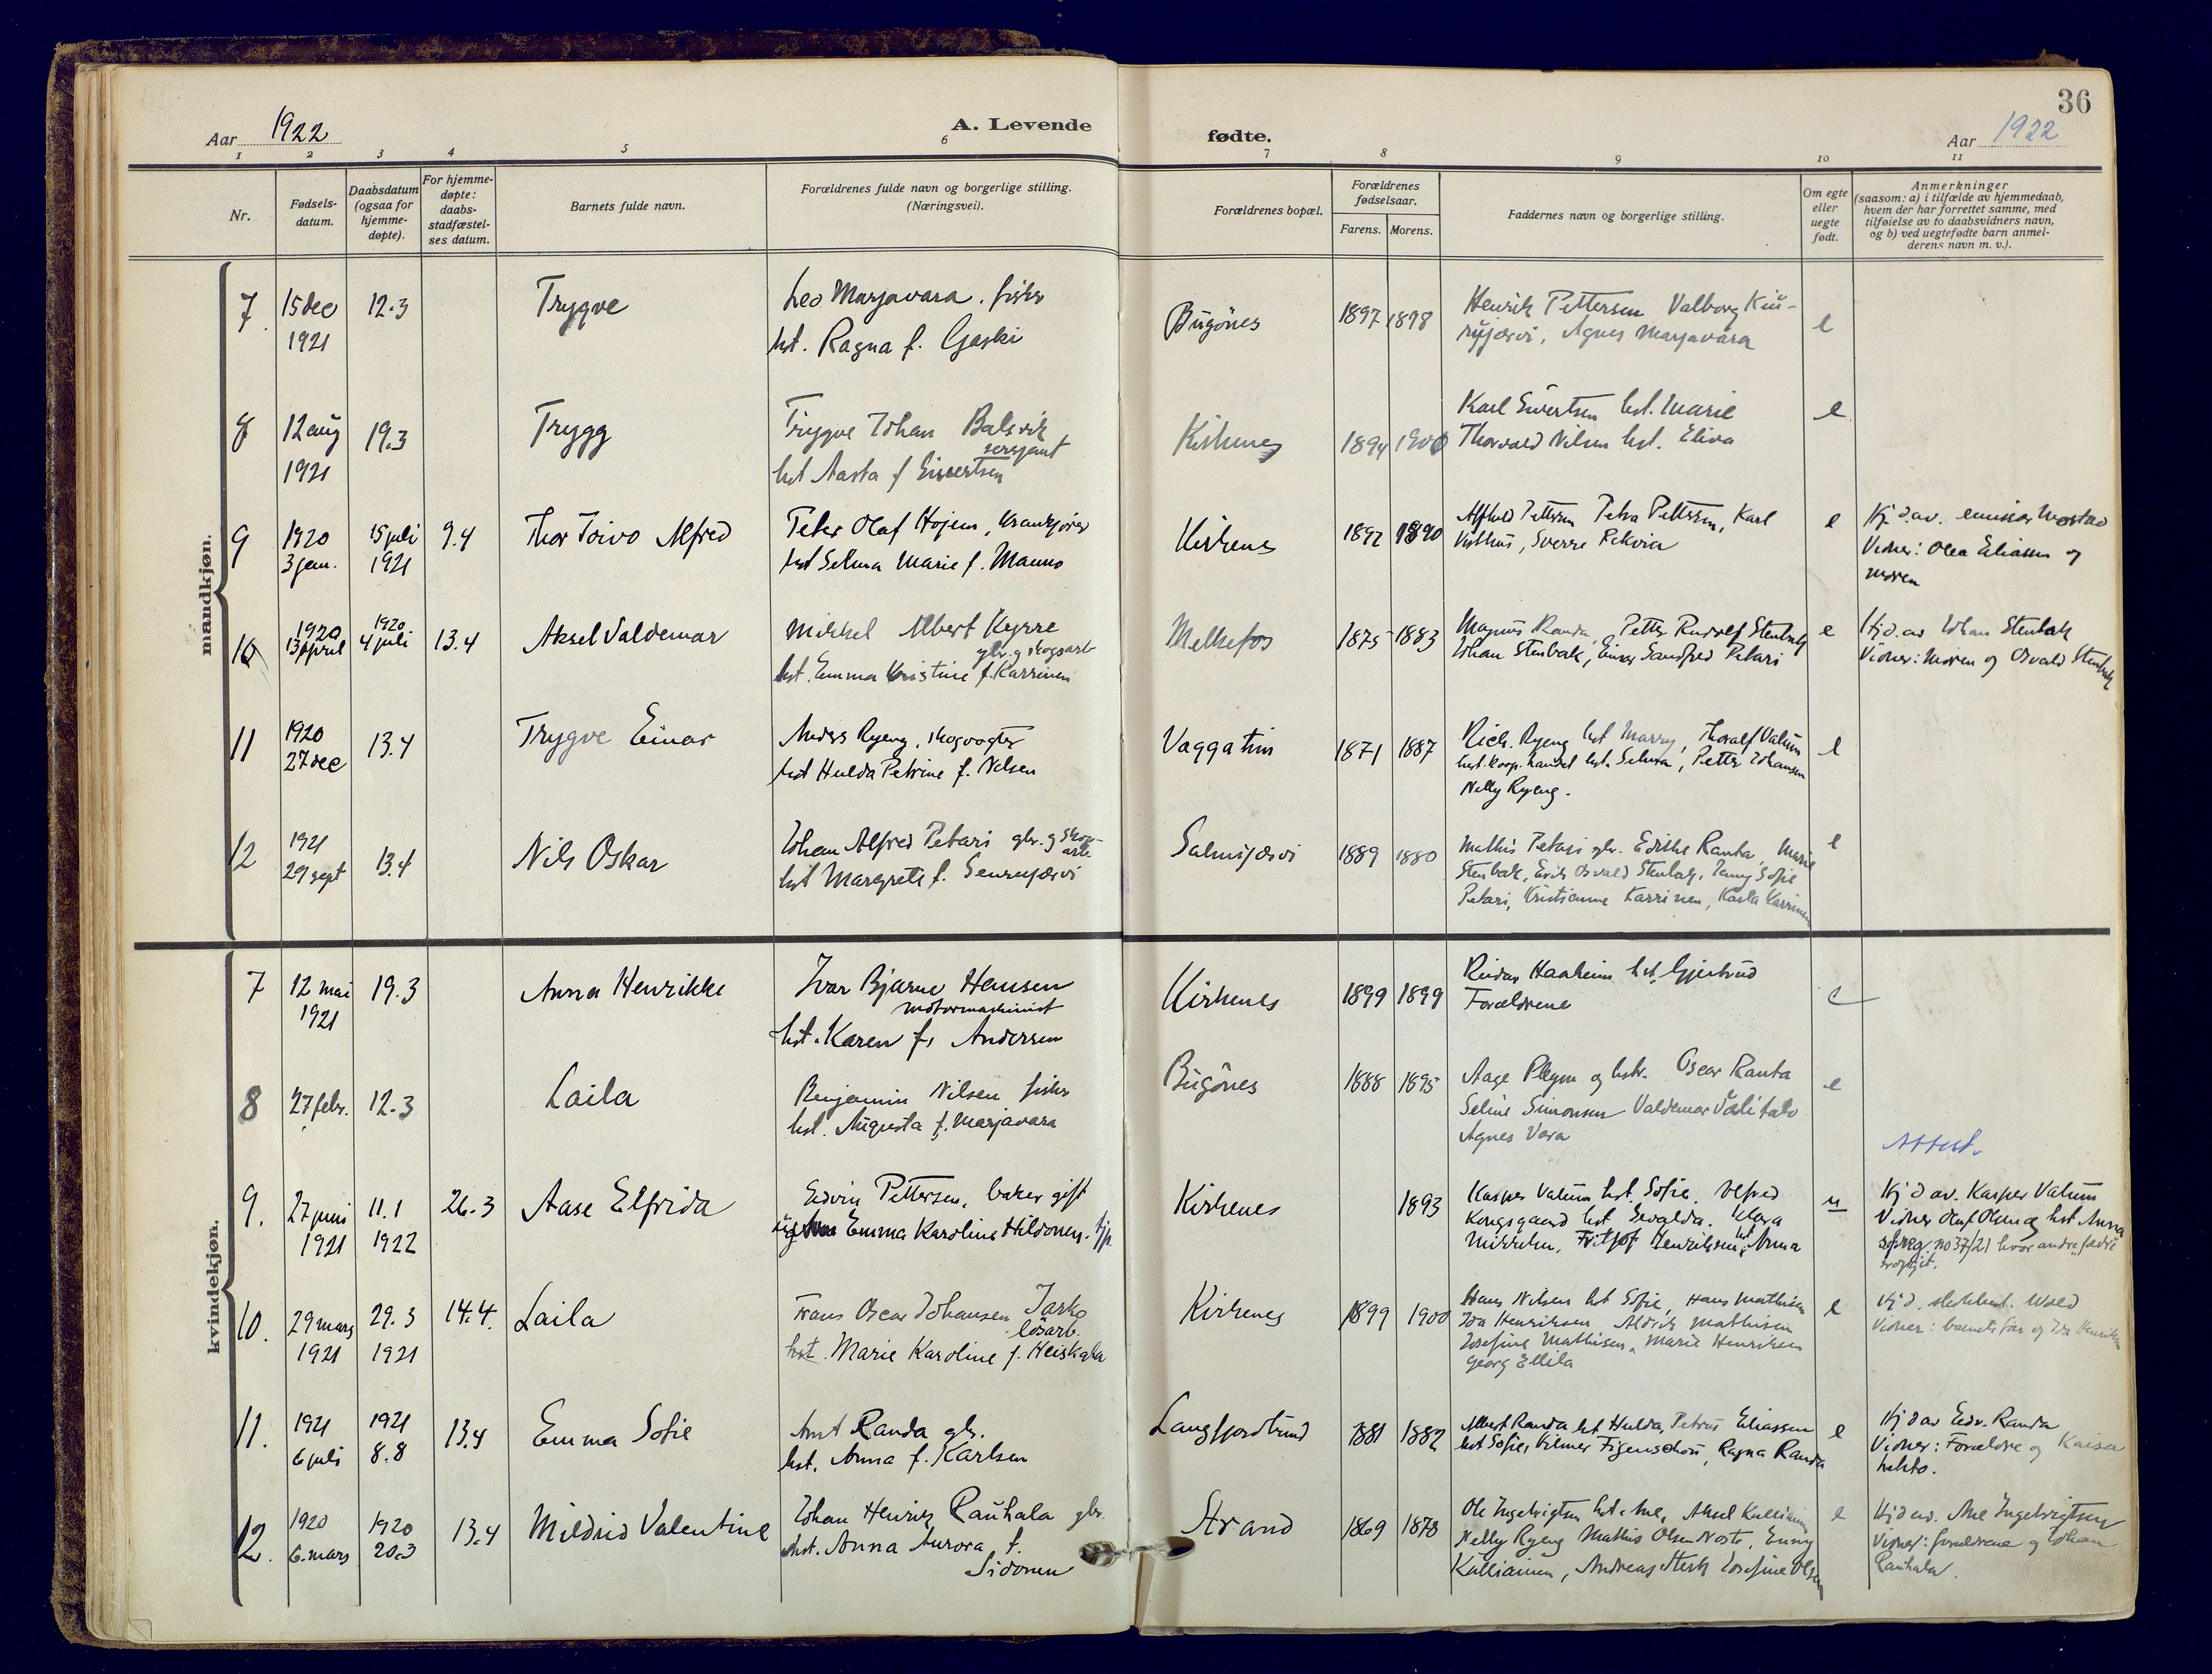 36
Aar 1922
A. Levende
fødte.
Aar 1922
1 2 3 4 5 6 7 8 9 10 11
Nr.
Fødsels-
datum.
Daabsdatum
(ogsaa for
hjemme-
døpte).
For hjemme-
døpte:
daabs-
stadfæstel-
ses datum.
Barnets fulde navn.
Forældrenes fulde navn og borgerlige stilling.
(Næringsvei).
Forældrenes bopæl.
Forældrenes
fødselsaar.
Farens. Morens.
Faddernes navn og borgerlige stilling.
Om egte
eller
uegte
født.
Anmerkninger
(saasom: a) i tilfælde av hjemmedaab,
hvem der har forrettet samme, med
tilføielse av to daabsvidners navn,
og b) ved uegtefødte barn anmel-
derens navn m. v.).
mandkjøn.
7
15 dec
1921
12.3
Trygve
Leo Marjavara. fisker
hst. Ragna f. Gaski
Bugönes
1897 1898
Henrik Pettersen Valborg Kiu-
rujærvi, Agnes Marjavara
e
8
12 aug
1921
19.3
Trygg
Trygve Johan Balsvik
sersjant
hst Aasta f Sivertsen
Kirkenes
1894 1900
Karl Sivertsen hst. Marie
Thorvald Nilsen hst.
e
9
1920
3 jan.
15 juli
1921
9.4
Thor Toivo Alfred
Peter Olaf Hojem, krankjører
hst Selma Marie f. Manno
Kirkenes
1892 1890
Alfhild Pettersen Petra Pettersen, Karl
Sverre
e
Hj. d. av. emissær
Vidner: Olea Eliassen og
moren
10
1920
13 april
1920
4 juli
13.4
Aksel Valdemar
Mikkel Albert Kyrre
gbr. og skogsarb
hst. Emma Kristine f. Karrinen
Melkefos
1875 1883
Magnus Randa, Petter Rudolf Stenbak
Johan Stenbak, Einar Petari
e
Hj d. av Johan Stenbak
Vidner: Moren og Osvald Stenbak
11
1920
27 dec
13.4
Trygve Einar
Anders Ryeng, skogvogter
hst Hulda Petrine f. Nilsen
Vaggatim
1871 1887
Rich. Ryeng hst Marry, Thoralf Vatum
hst. Selma, Petter Johansen
Nelly Ryeng.
e
12
1921
29 sept
13.4
Nils Oskar
Johan Alfred Petari gbr. og skog-
arb.
hst Margrete f.
Salmijærvi
1889 1880
Mathis Petari gbr. Edithe Ranta, Marie
Stenbak, Erik Osvald Stenbak, Jenny Sofie
Petari, Kristianne Karrinen, Karla Karrinen
e
kvindekjøn.
7
12 mai
1921
19.3
Anna Henrikke
Ivar Bjarne Hansen
motormaskinist
hst. Karen f. Andersen
Kirkenes
1899 1899
Reidar Haaheim hst. Gjertrud
Forældrene
e
8
27 febr.
12.3
Laila
Benjamin Nilsen fisker
hst. Augusta f. Marjavara
Bugönes
1888 1895
Aage Pleym og hstr. Oscar Ranta
Seline Simonsen Valdemar
Agnes Vara
e
Attest.
9.
27 juni
1921
11.1
1922
26.3
Aase Elfrida
Edvin Pettersen, baker gift
Emma Karoline Hildonen. tjp.
Kirkenes
1893
Kasper Vatum hst. Sofie. Alfred
Kongsgaard hst Klara
Mikkelsen, Fritjof Henriksen, hst Anna
u
Hj d av. Kasper Vatum
Vidner Oluf Olsen og hst Anna
no 37/21 hvor andre
10.
29 mars
1921
29.3
1921
14.4
Laila
Frans Oscar Johansen Jarko
løsarb.
hst. Marie Karoline f. Heiskala
Kirkenes
1899 1900
Hans Nilsen hst Sofie, Hans Mathisen
Ida Henriksen, Aldrik Mathisen
Josefine Mathisen, Marie Henriksen
Georg Ellila
e
Hj d. Wold
Vidner: barnets far og Ida Henriksen
11.
1921
6 juli
1921
8.8
13.4
Emma Sofie
Arnt Randa gbr.
hst. Anna f. Karlsen
Langfjordbund
1881 1882
Albert Randa hst Hulda, Petrus Eliassen
hst Sofie, Hilmer Figenschou, Ragna Randa
e
Hj d av Edv. Randa
Vidner: Forældre og Kaisa
Lehto.
12.
1920
6. mars
1920
20.3
13.4
Mildrid Valentine
Johan Henrik Rauhala gbr.
hst. Anna Aurora f.
Sidonen
Strand
1869 1878
Ole Ingebrigtsen hst. Ane, Aksel Kalliainen
Nelly Ryeng Mathis Olsen Enny
Kalliainen, Andreas Josefine Olsen
e
Hj d av. Ane Ingebrigtsen
Vidner: forældrene og Johan
Rauhala.